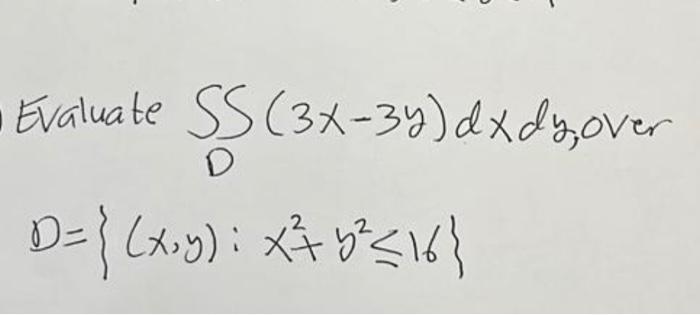 Evaluate SS (3x-3y) dxdy, over
D
D={(x,y): x²+y²≤16}